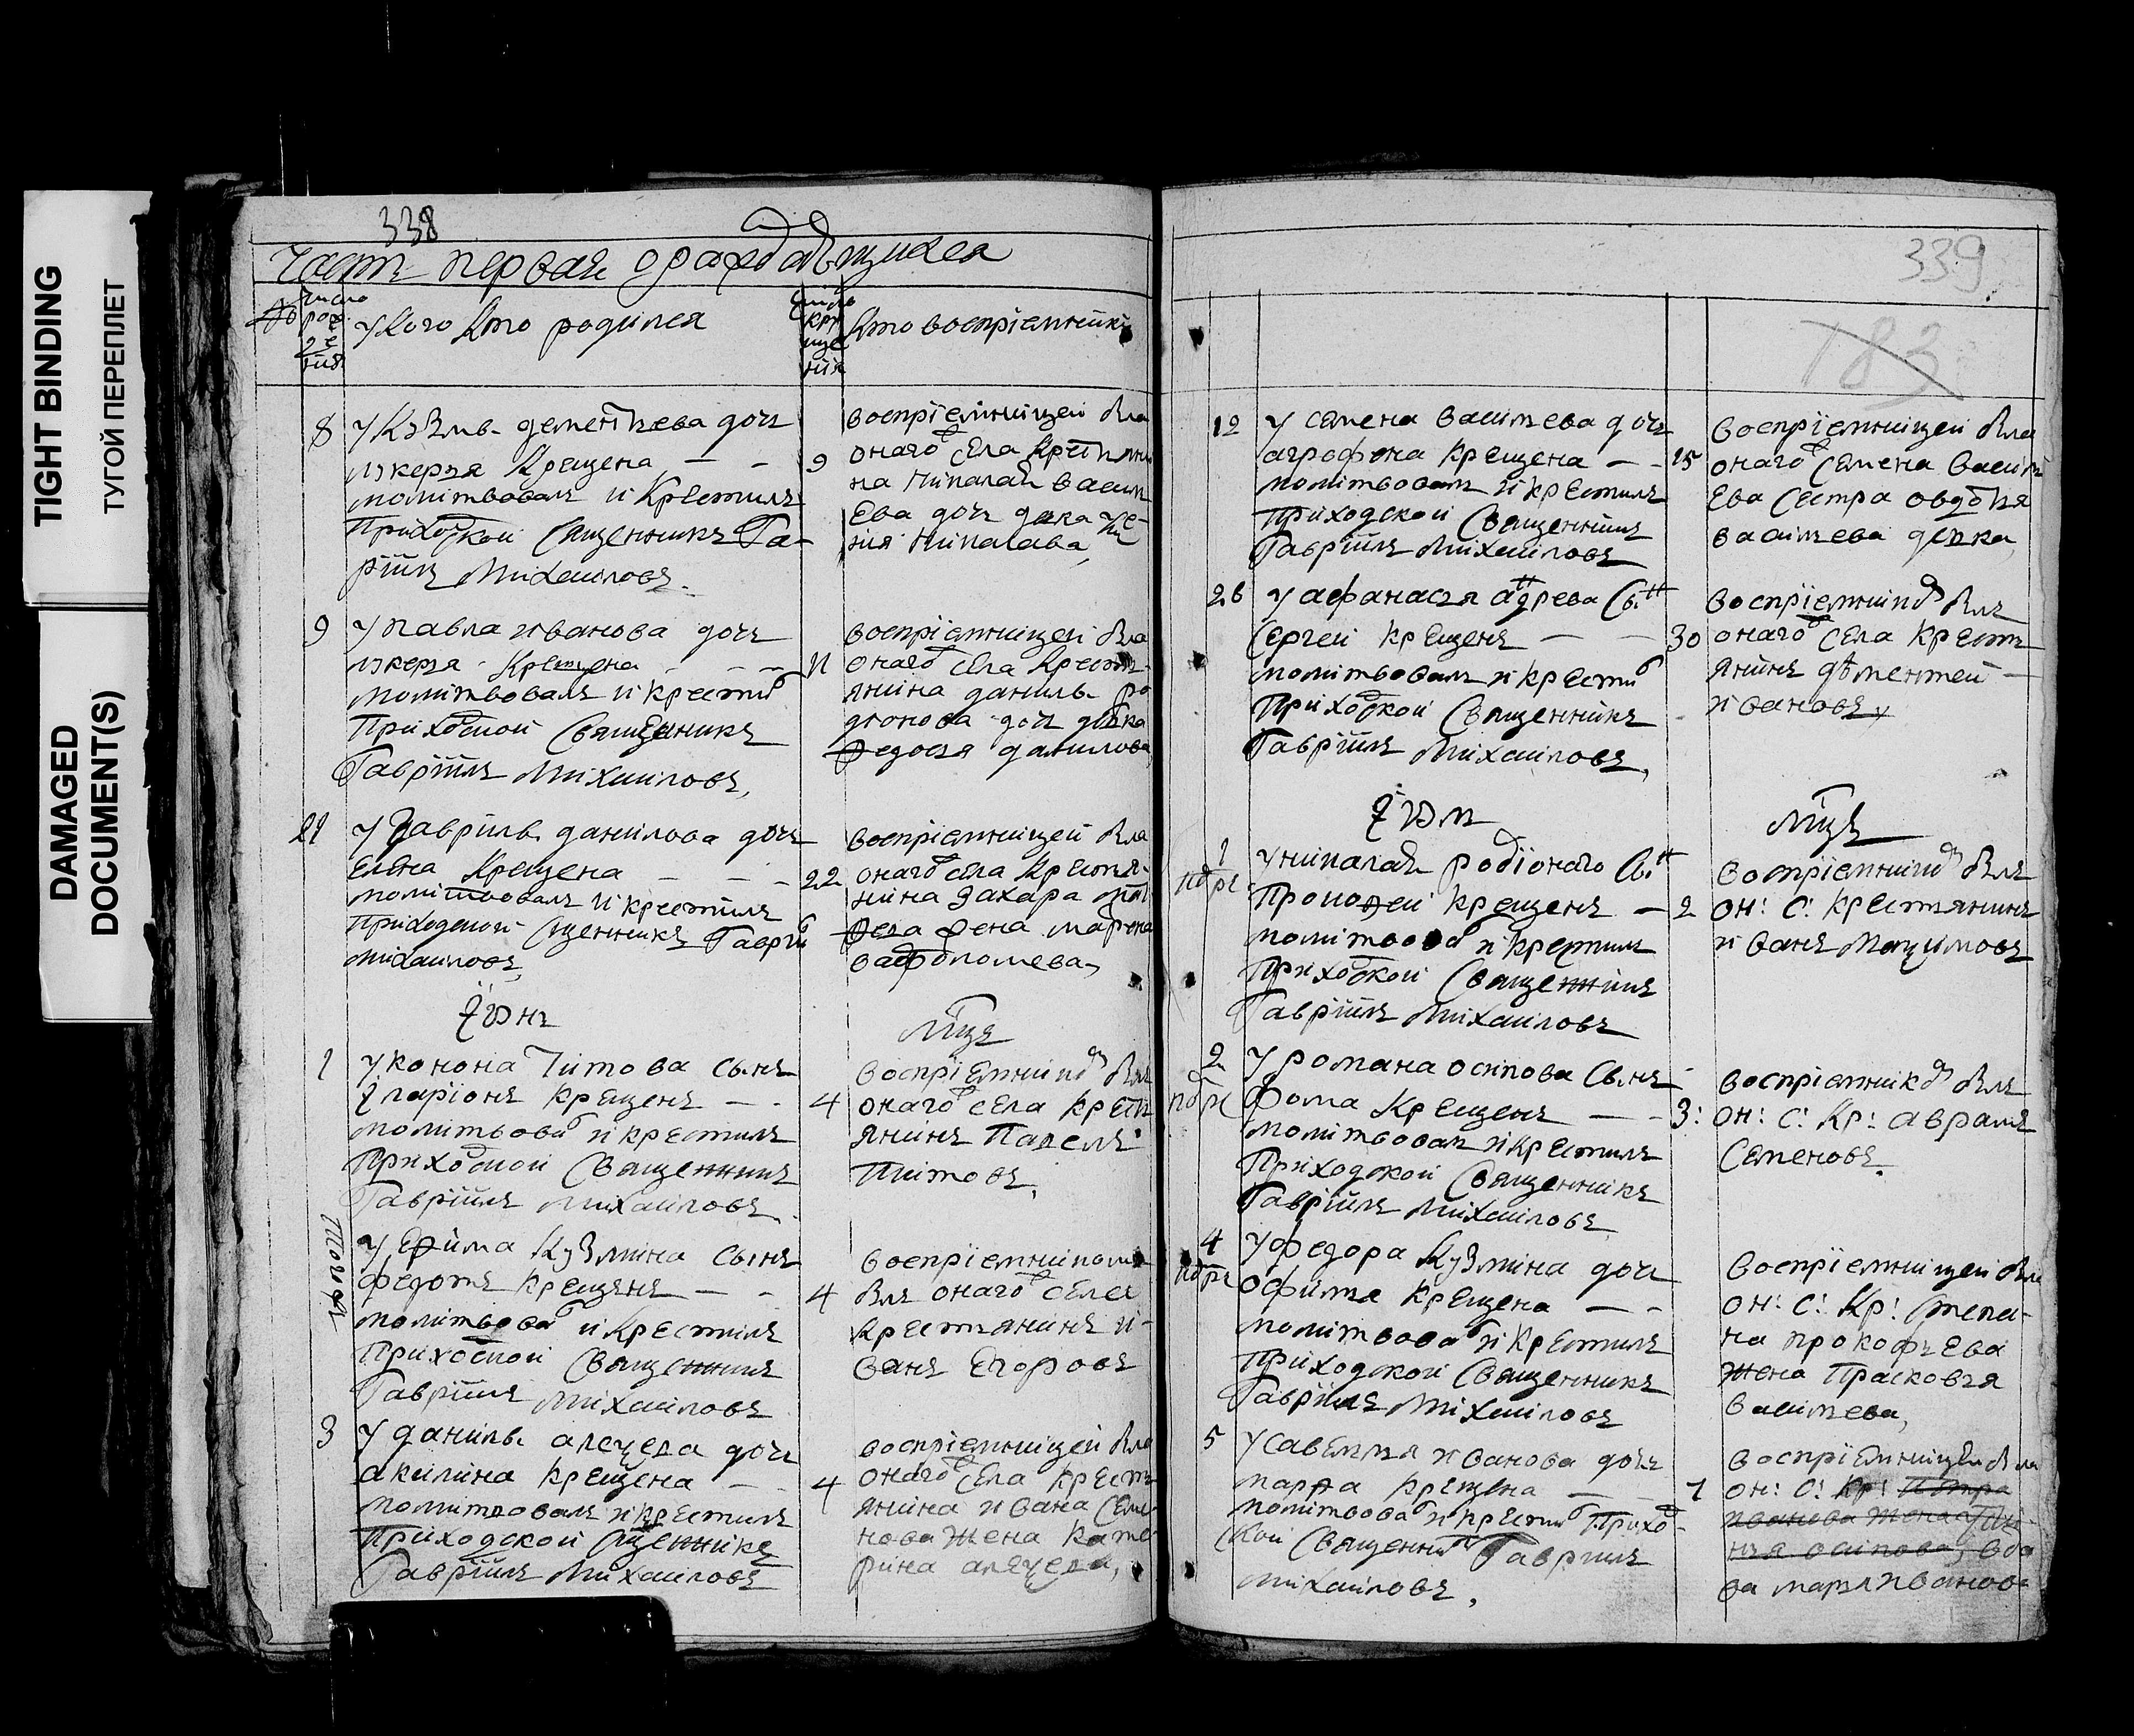 TIGHT BINDING
ТУГОЙ ПЕРЕПЛЕТ
DAMAGED
DOCUMENT(S)
338
часть первая о раждающихся
число
рож
де
ния
У кого кто родился
число
кре
ще
ния
кто воспріемники
8
У Кузмы дементьева дочь
лукерья Крещена
молитвовалъ и Крестилъ
Приходской Священникъ Га-
вріилъ Михаиловъ
9
воспріемницей была
онаго села Крестьяни
на Николая васил
ева дочь девка
Николаева
9
У павла иванова дочь
лукерья Крещена
молитвовалъ и крестил
Приходской Священникъ
Гавріилъ Михаиловъ
11
воспріемницей была
онаго села Кресть
янина данилы ро
дионова дочь девка
Федосья данилова
21
У Гаврилы данилова дочь
Елена Крещена
молитвовалъ и крестилъ
приходской Священникъ Гаврiи
Михаиловъ
22
воспріемницей была
онаго села Крестья-
нина Захара
жена марфа
вафоломева
Июнь
мцъ
1
У конона Титова сынъ
Iларіонъ Крещенъ
молитвовал и крестилъ
Приходской Священникъ
Гавріилъ Михаиловъ
4
воспріемником былъ
онаго села Кресть
янинъ Павелъ
Титовъ
того дня
У Ефима Кузмина сынъ
федотъ Крещенъ
молитвовал и Крестилъ
Приходской Священникъ
Гавріилъ Михаиловъ
4
воспріемникомъ
былъ онаго села
крестьянинъ и-
ванъ Егоровъ
3
У данилы алексеева дочь
акилина Крещена
молитвовалъ и крестилъ
Приходской Священникъ
Гавріилъ Михаиловъ
4
воспріемницей была
онаго села крест
янина ивана Семе-
нова жена кате-
рина алексеева
339
183
12
У семена васильева дочь
аграфена Крещена
молитвовалъ и крестилъ
приходской Священникъ
Гавріилъ Михаиловъ
15
воспріемницей была
онаго семена васил
ева сестра овдотья
васильева девка
26
У афанасья андреева сын
Сергей крещенъ
молитвовалъ и крестил
Приходской Священникъ
Гавріилъ Михаиловъ
30
воспріемником былъ
онаго села Крест
янинъ дементей
ивановъ
Июль
мцъ
1
У николая родіонова сын
Прокофей Крещенъ
молитвовал и крестилъ
Приходской Священникъ
Гавріилъ Михаиловъ
2
воспріемником былъ
он: С: Крестьянинъ
иванъ Максимовъ
2
У романа осипова сынъ
Фома Крещенъ
молитвовалъ и крестилъ
Приходской Священникъ
Гавріилъ Михаиловъ
3:
воспріемником былъ
он: С: Кр: аврамъ
Семеновъ
4
У федора Кузмина дочь
офимья Крещена
молитвовал и крестилъ
Приходской Священникъ
Гавріилъ Михаиловъ
воспріемницей была
он: С: Кр: степа-
на прокофьева
жена Прасковья
васильева
5
У савелья иванова дочь
марфа Крещена
молитвовал и крестил Прихо-
ской Священник Гаврилъ
михаиловъ
7
воспріемницей была
он: С: Кр: Петра
иванова жена
осипова вдо
ва марья иванова